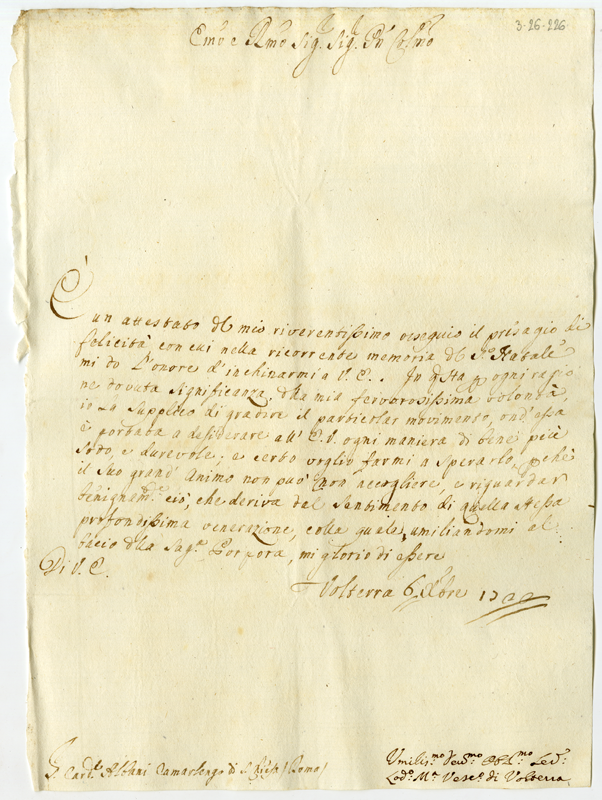 3·26·226
Emo e Rmo Sig.r Sig.r Pn Colmo
È un attestato del mio riverentissimo ossequio il presagio di
felicità con cui nella ricorrente memoria del S.o Natale
mi do l'onore d'inchinarmi a V. E. . In q.sta p ogni ragio
ne dovuta significanza della mia fervorosissima volontà,
io La supplico di gradire il particolar movimento, ond'essa
è portata a desiderare all' E. V. ogni maniera di bene più
sodo, e durevole; e certo voglio farmi a sperarlo, pchè
il Suo grand' Animo non può non accogliere, e riguardar
benignam.te ciò, che deriva dal Sentimento di quella stessa
profondissima venerazione, colla quale umiliandomi al
bacio della Sag.a Porpora, mi glorio di essere
Di V. E.
Volterra 6 Xbre 1722
S. Card.le Albani Camarlengo di S. Chiesa / Roma /
Umiliss.mo Dev.mo Obl.mo Ser.
Lod.o M.a Vesc.o di Volterra